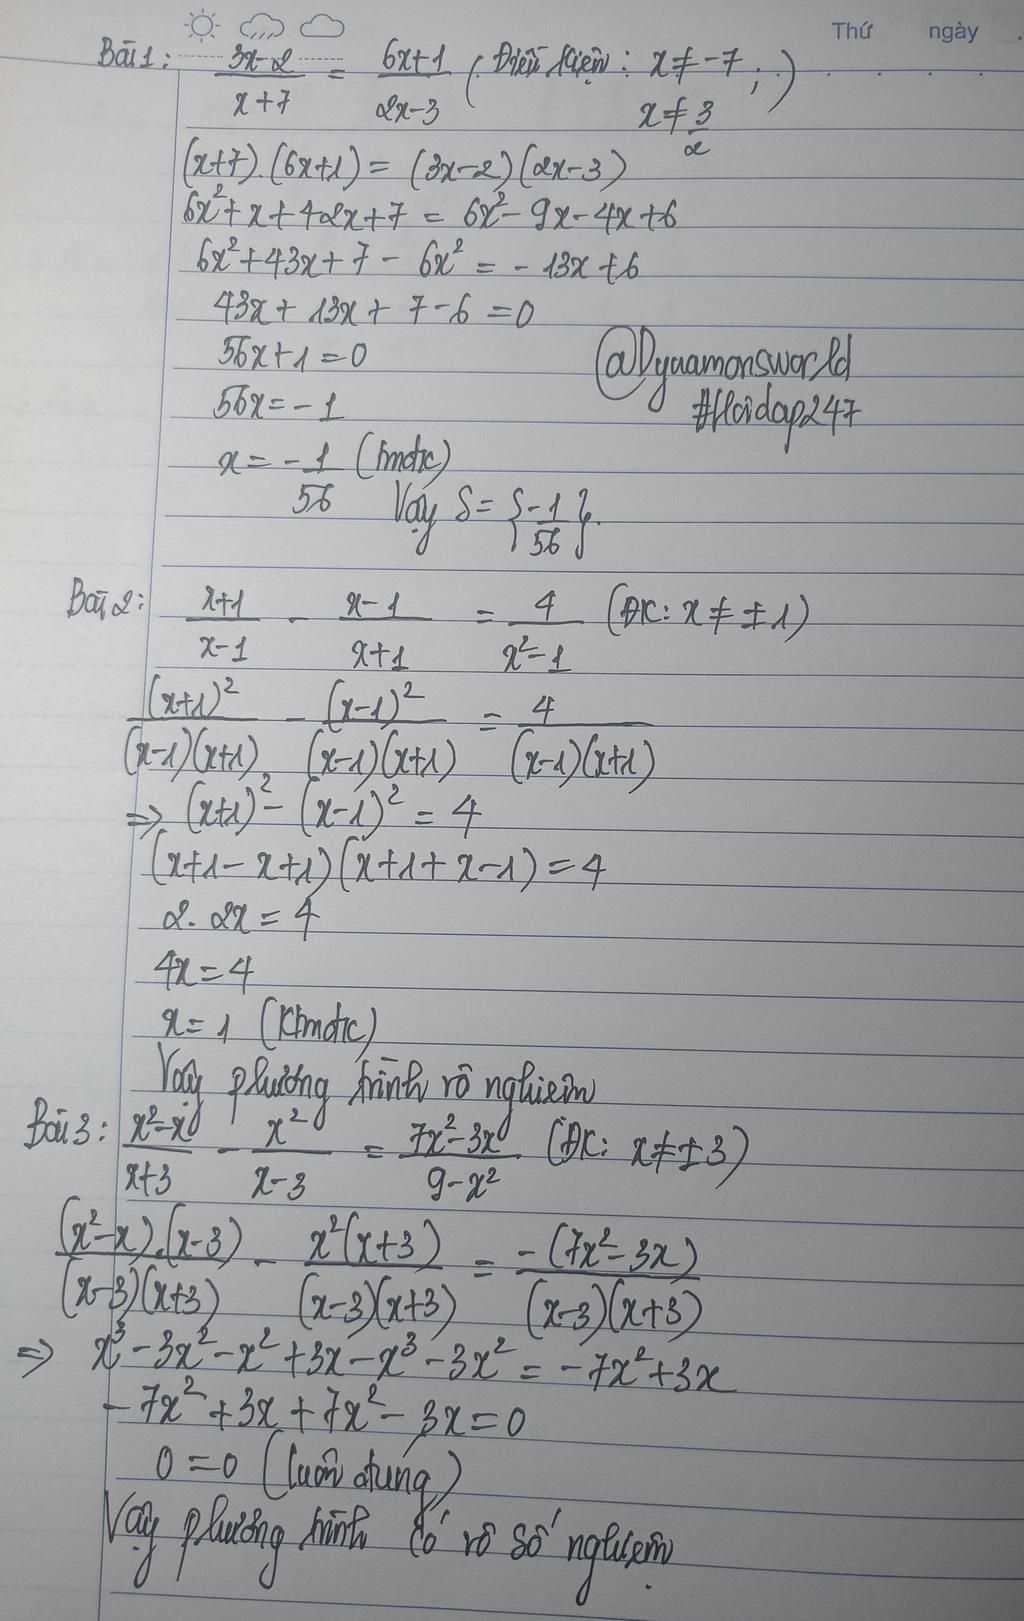 Thứ ngày
Bài 1: (3x-2)/(x+7) = (6x+1)/(2x-3) (Điều kiện: x ≠ -7; x ≠ 3/2)
(x+7).(6x+1) = (3x-2)(2x-3)
6x²+x+42x+7 = 6x²-9x-4x+6
6x²+43x+7-6x² = -13x+6
43x+13x+7-6=0
56x+1=0
@Dyuamonsworld
#Hoidap247
56x=-1
x = -1/56 (tmđk)
Vậy S = {-1/56}.
Bài 2: (x+1)/(x-1) - (x-1)/(x+1) = 4/(x²-1) (ĐK: x ≠ ±1)
(x+1)²/((x-1)(x+1)) - (x-1)²/((x-1)(x+1)) = 4/((x-1)(x+1))
=> (x+1)²-(x-1)² = 4
(x+1-x+1)(x+1+x-1)=4
2.2x=4
4x=4
x=1 (Ktmđk)
Vậy phương trình vô nghiệm
Bài 3: (x²-x)/(x+3) - x²/(x-3) = (7x²-3x)/(9-x²) (ĐK: x≠±3)
(x²-x).(x-3)/((x-3)(x+3)) - x²(x+3)/((x-3)(x+3)) = -(7x²-3x)/((x-3)(x+3))
=> x³-3x²-x²+3x-x³-3x² = -7x²+3x
-7x²+3x+7x²-3x=0
0=0 (luôn đúng)
Vậy phương trình có vô số nghiệm